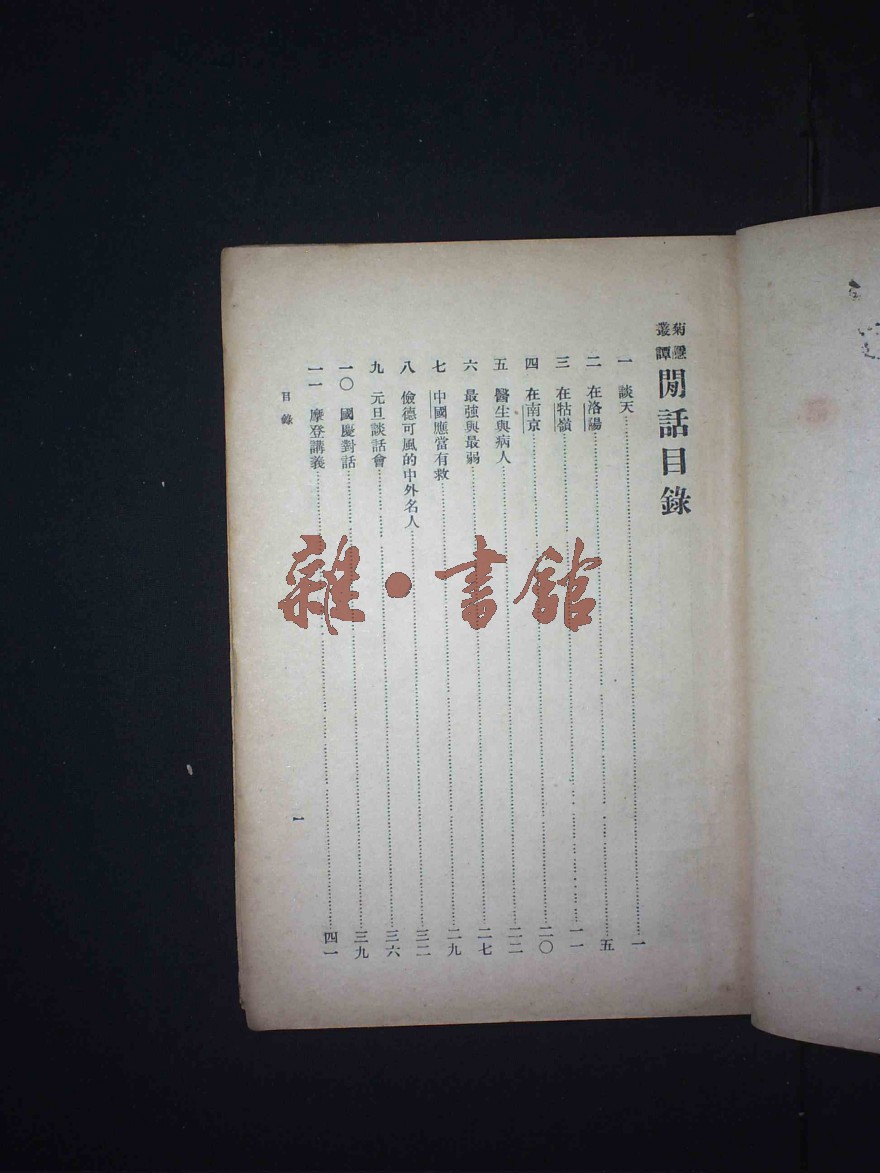 菊隱叢譚
閒話目錄
一 談天……一
二 在洛陽……五
三 在牯嶺……一一
四 在南京……二〇
五 醫生與病人……二二
六 最強與最弱……二七
七 中國應當有救……二九
八 儉德可風的中外名人……三二
九 元旦談話會……三六
一〇 國慶對話……三九
一一 摩登講義……四一
目錄
1
雜·書館